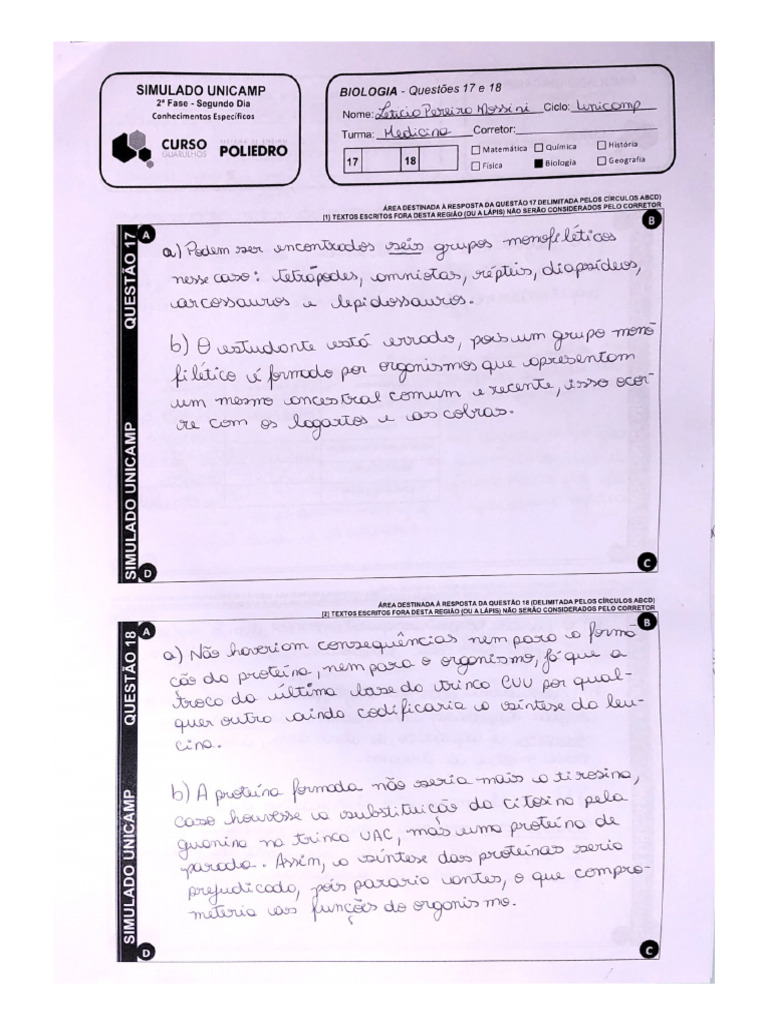 SIMULADO UNICAMP
2ª Fase - Segundo Dia
Conhecimentos Específicos
CURSO
GUARULHOS
SISTEMA DE ENSINO
POLIEDRO
BIOLOGIA - Questões 17 e 18
Nome: Leticia Pereira Mossini Ciclo: Unicamp
Turma: Medicina Corretor:
17 18
Matemática Química História
Física Biologia Geografia
ÁREA DESTINADA À RESPOSTA DA QUESTÃO 17 DELIMITADA PELOS CÍRCULOS ABCD)
[1) TEXTOS ESCRITOS FORA DESTA REGIÃO (OU A LÁPIS) NÃO SERÃO CONSIDERADOS PELO CORRETOR
SIMULADO UNICAMP QUESTÃO 17
A
B
a) Podem ser encontrados seis grupos monofiléticos
nesse caso: tetrápodes, amniotas, répteis, diapsídeos,
arcossauros e lepidossauros.
b) O estudante está errado, pois um grupo mono
filético é formado por organismos que apresentam
um mesmo ancestral comum e recente, isso ocor-
re com os lagartos e as cobras.
D
C
ÁREA DESTINADA À RESPOSTA DA QUESTÃO 18 (DELIMITADA PELOS CÍRCULOS ABCD)
[2) TEXTOS ESCRITOS FORA DESTA REGIÃO (OU A LÁPIS) NÃO SERÃO CONSIDERADOS PELO CORRETOR
SIMULADO UNICAMP QUESTÃO 18
A
B
a) Não haveriam consequências nem para a forma
ção da proteína, nem para o organismo, já que a
troca da última base da trinca CUU por qual-
quer outra ainda codificaria a síntese da leu-
cina.
b) A proteína formada não seria mais a tirosina,
caso houvesse a substituição da citosina pela
guanina na trinca UAC, mas uma proteína de
parada. Assim, a síntese das proteínas seria
prejudicada, pois pararia antes, o que compro-
meteria as funções do organismo.
D
C